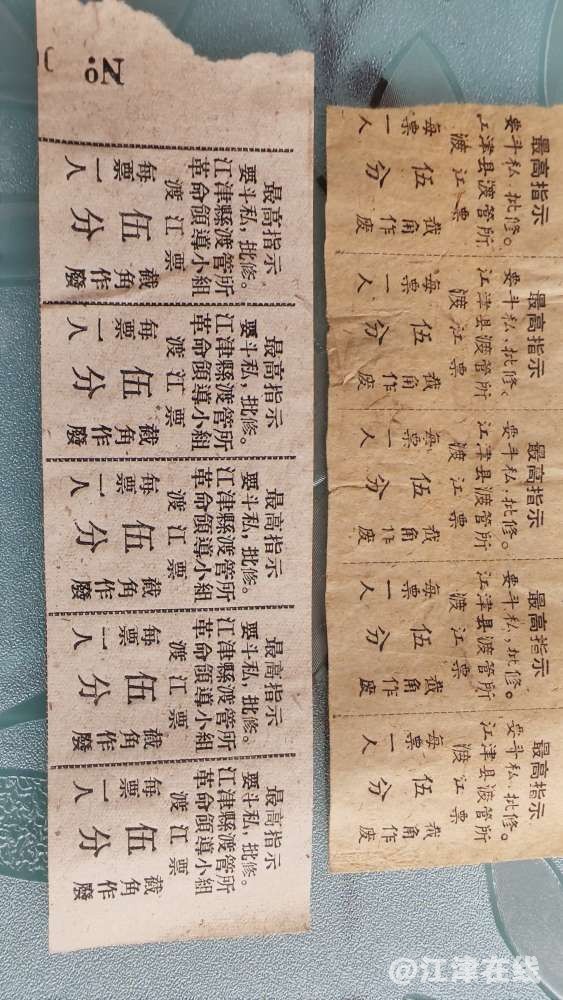 No.
最高指示
要斗私,批修。
江津縣渡管所
革命領導小組
渡江票
每票一人
伍分
截角作廢
最高指示
要斗私,批修。
江津縣渡管所
革命領導小組
渡江票
每票一人
伍分
截角作廢
最高指示
要斗私,批修。
江津縣渡管所
革命領導小組
渡江票
每票一人
伍分
截角作廢
最高指示
要斗私,批修。
江津縣渡管所
革命領導小組
渡江票
每票一人
伍分
截角作廢
最高指示
要斗私,批修。
江津縣渡管所
革命領導小組
渡江票
每票一人
伍分
截角作廢
最高指示
要斗私、批修。
江津县渡管所
渡江票
每票一人
伍分
截角作废
最高指示
要斗私、批修。
江津县渡管所
渡江票
每票一人
伍分
截角作废
最高指示
要斗私、批修。
江津县渡管所
渡江票
每票一人
伍分
截角作废
最高指示
要斗私,批修。
江津县渡管所
渡江票
每票一人
伍分
截角作废
最高指示
要斗私、批修。
江津县渡管所
渡江票
每票一人
伍分
截角作废
@江津在线